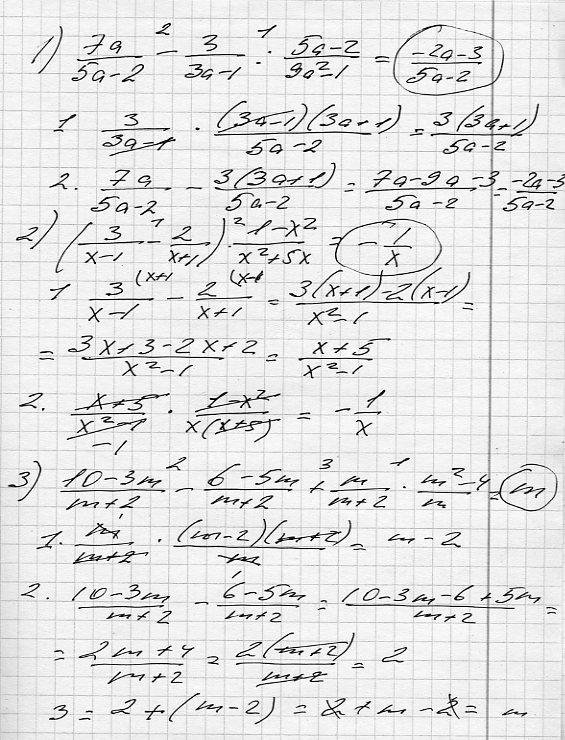 1) 7a/(5a-2) -² 3/(3a-1) :¹ (5a-2)/(9a²-1) = (-2a-3)/(5a-2)
1 3/(3a-1) · (3a-1)(3a+1)/(5a-2) = 3(3a+1)/(5a-2)
2. 7a/(5a-2) - 3(3a+1)/(5a-2) = (7a-9a-3)/(5a-2) = (-2a-3)/(5a-2)
2) (3/(x-1) -¹ 2/(x+1)) ·² (1-x²)/(x²+5x) = -1/x
1 3/(x-1) (x+1 - 2/(x+1) (x-1 = (3(x+1)-2(x-1))/(x²-1) =
= (3x+3-2x+2)/(x²-1) = (x+5)/(x²-1)
2. (x+5)/(x²-1) · (1-x²)/(x(x+5)) = -1/x
-1
3) (10-3m)/(m+2) -² (6-5m)/(m+2) +³ m/(m+2) ·¹ (m²-4)/m = m
1. m/(m+2) · (m-2)(m+2)/m = m-2
2. (10-3m)/(m+2) - (6-5m)/(m+2) = (10-3m-6+5m)/(m+2) =
= (2m+4)/(m+2) = 2(m+2)/(m+2) = 2
3 = 2+(m-2) = 2+m-2 = m